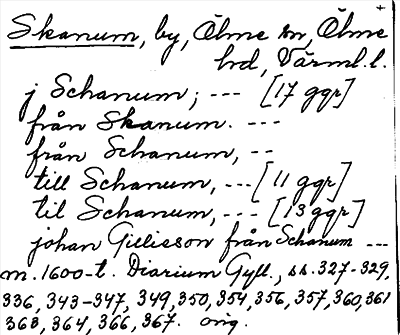 +
Skanum, by, Ölme sn, Ölme
hd, Värml. l.
j Schanum; --- [17 ggr]
från Skanum. ---
från Schanum, --
till Schanum, --- [11 ggr]
til Schanum, --- [13 ggr]
johan Gillisson från Schanum ---
m. 1600-t. Diarium Gyll., ss. 327-329,
336, 343-347, 349, 350, 354, 356, 357, 360, 361
363, 364, 366, 367. orig.